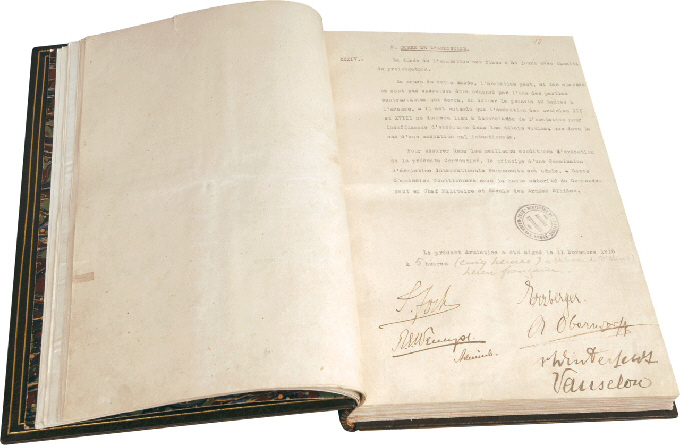 F. DUREE DE L'ARMISTICE.
XXXIV.- La durée de l'Armistice est fixée à 36 jours avec faculté
de prolongation.
Au cours de cette durée, l'Armistice peut, si les clauses
ne sont pas exécutées être dénoncé par l'une des parties
contractantes qui devra, en donner le préavis 48 heures à
l'avance. Il est entendu que l'exécution des articles III
et XVIII ne donnera lieu à dénonciation de l'Armistice pour
insuffisance d'exécution dans les délais voulus, que dans le
cas d'une exécution mal intentionnée.
Pour assurer dans les meilleures conditions l'exécution
de la présente Convention, le principe d'une Commission
d'Armistice Internationale Permanente est admis. Cette
Commission fonctionnera sous la haute autorité du Commande-
ment en Chef Militaire et Naval des Armées Alliées.
Le présent Armistice a été signé le 11 Novembre 1918
à 5 heures (cinq heures)
heure française
F. Foch
Erzberger
R.E. Wemyss
A Oberndorff
v Winterfeldt
Vanselow